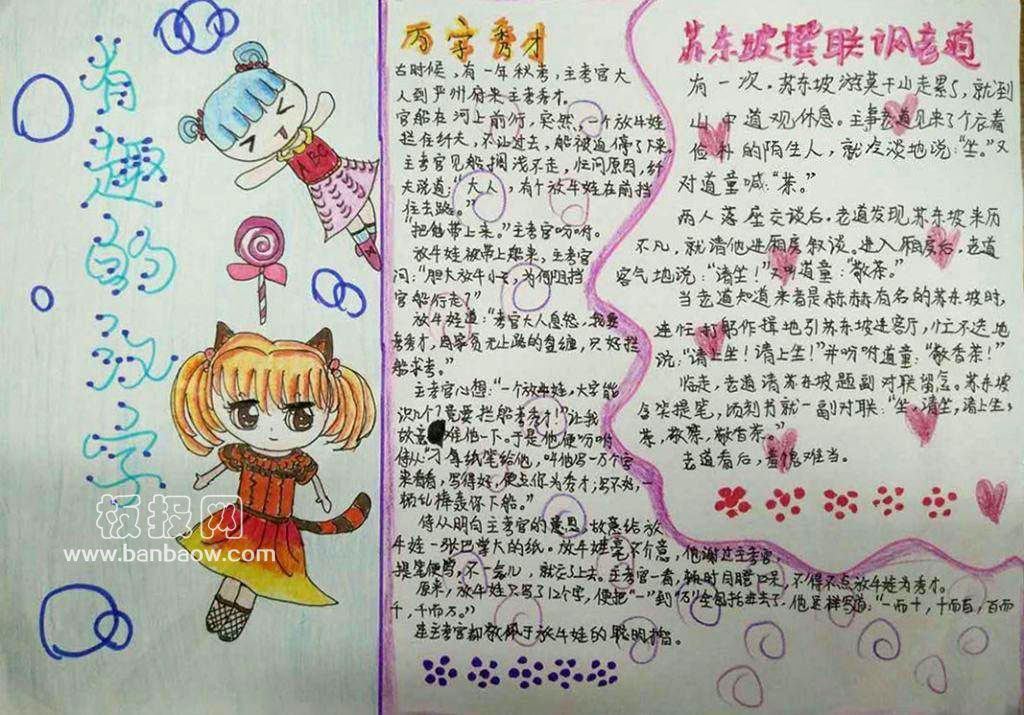 有趣的汉字
万字秀才
古时候，有一年秋考，主考官大
人到严州府来主考秀才。
官船在河上前行，突然，一个放牛娃
拦住纤夫，不让过去，船被迫停了下来。
主考官见船搁浅不走，忙问原因，纤
夫说道：“大人，有个放牛娃在前挡
住去路。”
“把他带上来。”主考官吩咐。
放牛娃被带上船来，主考官
问：“胆大放牛小子，为何阻挡
官船行走？”
放牛娃道：“考官大人息怒，我要
考秀才，因家贫无上路的盘缠，只好拦
船求考。”
主考官心想：“一个放牛娃，大字能
识几个？竟要拦船考秀才！”让我
故意难他一下。于是他便吩咐
侍从“拿纸笔给他，叫他写一万个字
来看看，写得好，便点你为秀才；写不好，一
顿乱棒轰你下船。”
侍从明白主考官的意思，故意给放
牛娃一张巴掌大的纸。放牛娃毫不介意，他谢过主考官，
提笔便写，不一会儿，就交了上去。主考官一看，顿时目瞪口呆，不得不点放牛娃为秀才。
原来，放牛娃只写了12个字，便把“一”到“万”全包括进去了，他是样写道：“一而十，十而百，百而
千，千而万。”
连主考官却敬佩于放牛娃的聪明才智。
苏东坡撰联讽老道
有一次，苏东坡游莫干山走累了，就到
山中道观休息。主事老道见来了个衣着
俭朴的陌生人，就冷淡地说：“坐。”又
对道童喊：“茶。”
两人落座交谈后，老道发现苏东坡来历
不凡，就请他进厢房叙谈。进入厢房后，老道
客气地说：“请坐！”又叫道童：“敬茶。”
当老道知道来者是赫赫有名的苏东坡时，
连忙打躬作揖地引苏东坡进客厅，忙不迭地
说：“请上坐！请上坐！”并吩咐道童：“敬香茶！”
临走，老道请苏东坡题副对联留念。苏东坡
含笑提笔，顷刻书就一副对联：“坐，请坐，请上坐；
茶，敬茶，敬香茶。”
老道看后，羞愧难当。
板报网
www.banbaow.com